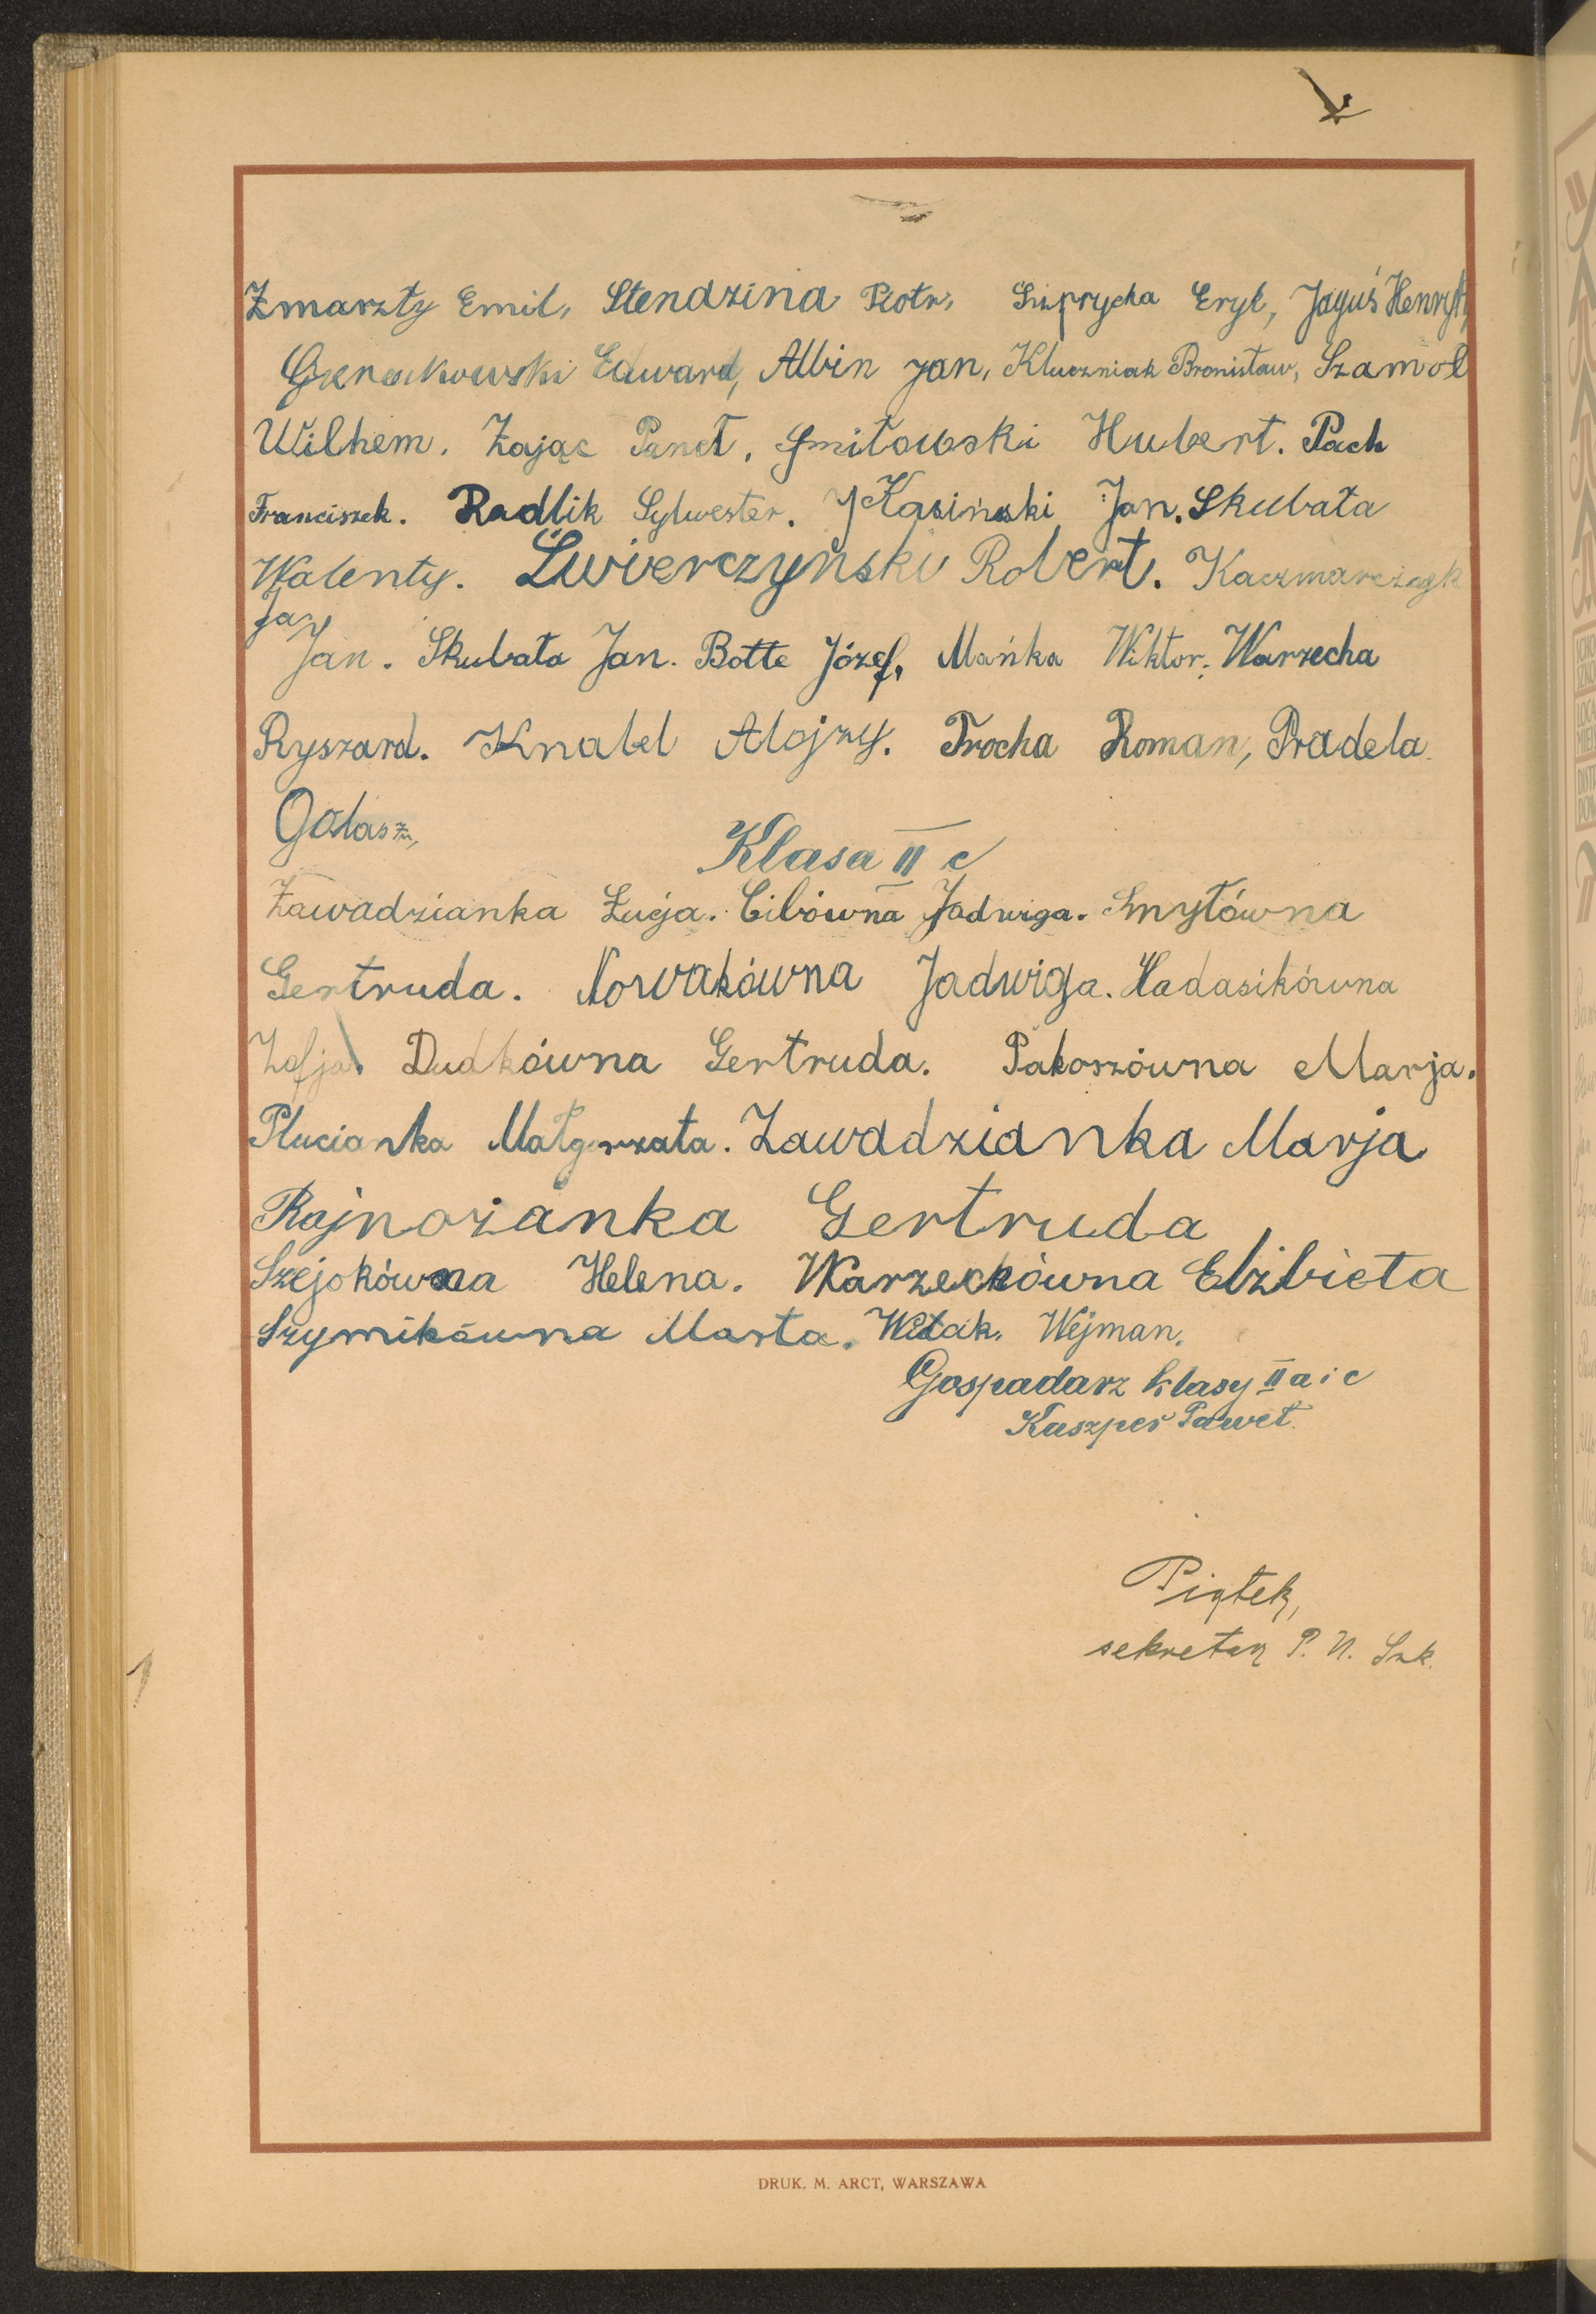 Zmarzły Emil, Stendzina Piotr, Suprycha Eryk, Jaguś Henryk,
Edward, Albin Jan, Kluczniak Bronisław, Szamol
Wilhem. Zając Paweł, Gmitowski Hubert. Pach
Franciszek. Radlik Sylwester. J Kasiński Jan. Skubała
Walenty. Świerczyński Robert. Kaczmarczyk
Ja
Jan. Skubała Jan. Botta Józef, Mańka Wiktor. Warzecha
Ryszard. Knabel Alojzy. Trocha Roman, Pradela
Golasz,
Klasa II c
Zawadzianka Łucja. Cibówna Jadwiga. Smyłówna
Gertruda. Nowakówna Jadwiga. Hadasikówna
Zofja Dudkówna Gertruda. Pakoszówna Marja.
Plucianka Małgorzata. Zawadzianka Marja
Rajnożanka Gertruda
Szejokówna Helena. Warzechówna Elżbieta
Szymikówna Marta. Witak. Wejman.
Gospodarz klasy II a i c
Kaszper Paweł.
Piątek,
sekretarz P. N. Szk.
DRUK. M. ARCT, WARSZAWA